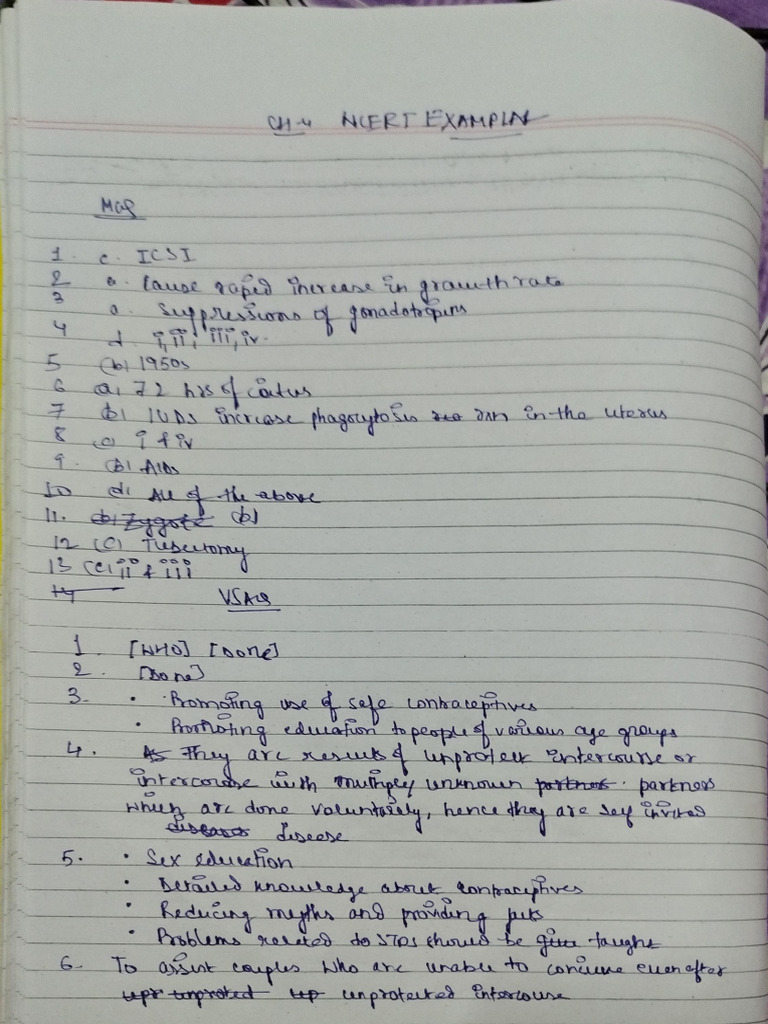 CH-4 NCERT EXAMPLAR
MCQ
1. c. ICSI
2 a. Cause rapid increase in growth rate
3 a. Suppressions of gonadotropins
4 d. i, ii, iii, iv.
5 (b) 1950s
6 (a) 72 hrs of coitus
7 (b) IUDs increase phagocytosis in the uterus
8 (c) i & iv
9. (b) AIDs
10 (d) All of the above
11. (b) Zygote (b)
12 (c) Tubectomy
13 (c) ii & iii
14
VSAQ
1. [WHO] [Done]
2. [Done]
3. • Promoting use of safe contraceptives
• Promoting education to people of various age groups
4. As They are results of unprotect intercourse or
intercourse with multiple unknown partners partners
which are done voluntarily, hence they are self invited
diseases disease
5. • Sex education
• Detailed knowledge about contraceptives
• Reducing myths and providing
• Problems related to STDs should be give taught
6. To assist couples who are unable to concieve even after
unprotected intercourse